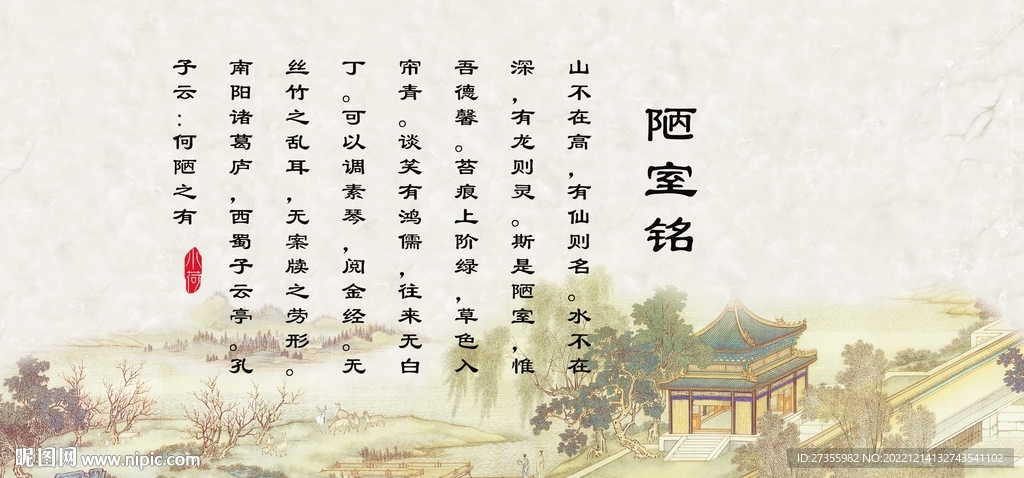 陋室铭
山不在高，有仙则名。水不在
深，有龙则灵。斯是陋室，惟
吾德馨。苔痕上阶绿，草色入
帘青。谈笑有鸿儒，往来无白
丁。可以调素琴，阅金经。无
丝竹之乱耳，无案牍之劳形。
南阳诸葛庐，西蜀子云亭。孔
子云：何陋之有
小荷
昵图网 www.nipic.com
ID:27355982 NO:20221214132743541102